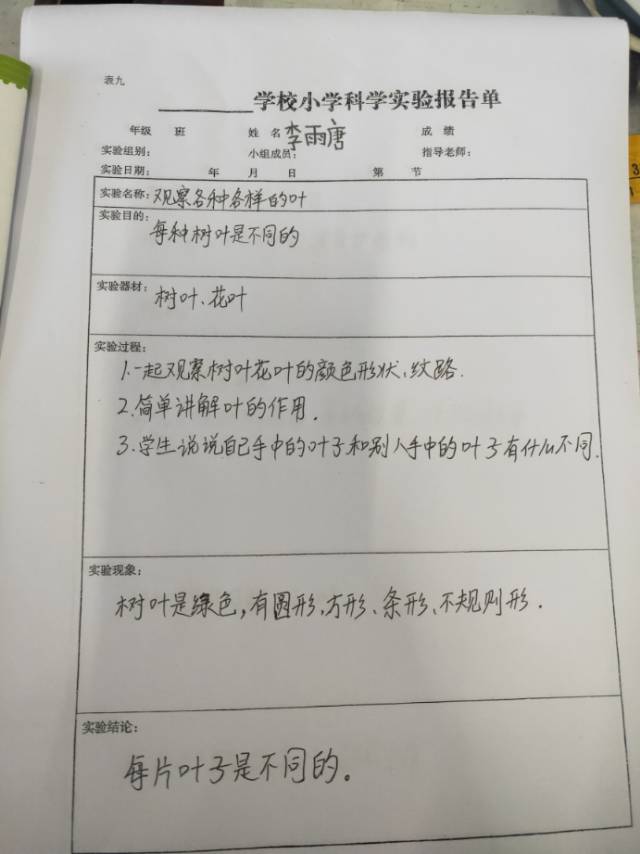 表九
学校小学科学实验报告单
年级 班 姓名 李雨唐 成绩
实验组别： 小组成员： 指导老师：
实验日期： 年 月 日 第 节
实验名称：观察各种各样的叶
实验目的：
每种树叶是不同的
实验器材：
树叶、花叶
实验过程：
1.一起观察树叶花叶的颜色形状、纹路.
2.简单讲解叶的作用.
3.学生说说自己手中的叶子和别人手中的叶子有什么不同.
实验现象：
树叶是绿色,有圆形、方形、条形、不规则形.
实验结论：
每片叶子是不同的。